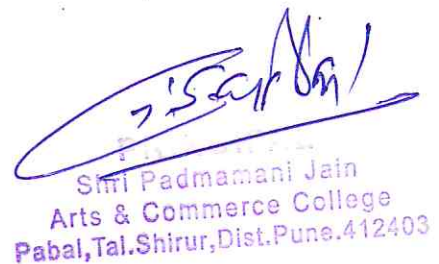 Shri Padmamani Jain
Arts & Commerce College
Pabal,Tal.Shirur,Dist.Pune.412403